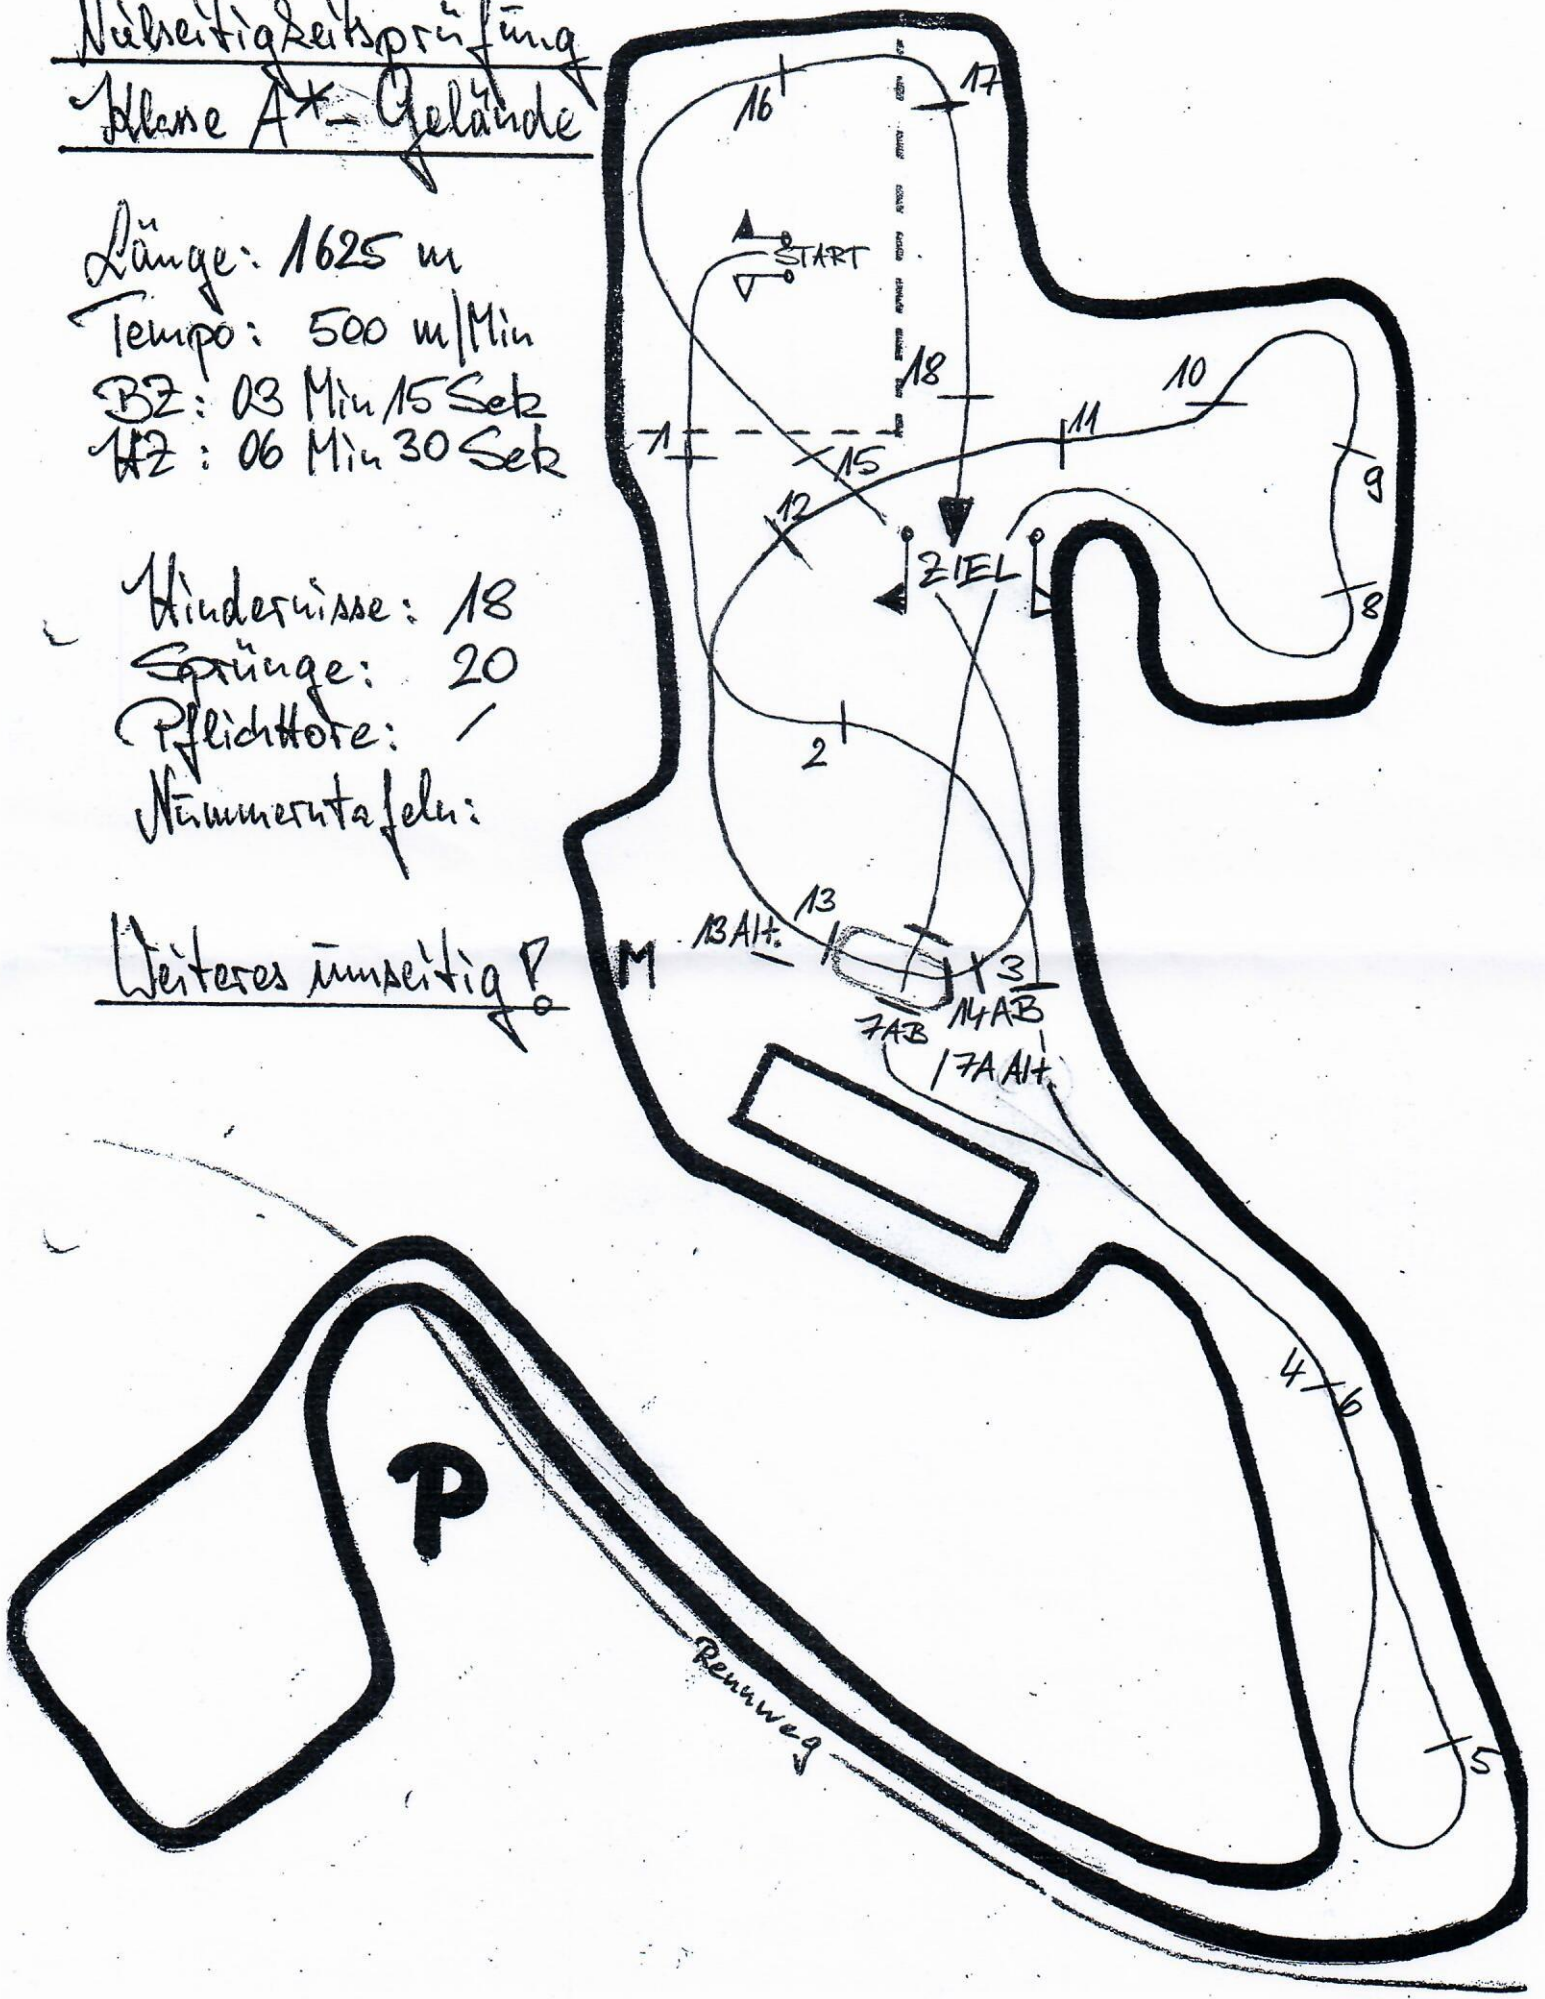 Vielseitigkeitsprüfung
Klasse A*- Gelände
Länge: 1625 m
Tempo: 500 m/Min
BZ: 03 Min 15 Sek
HZ: 06 Min 30 Sek
Hindernisse: 18
Sprünge: 20
Pflichttore: /
Nummerntafeln:
Weiteres umseitig!
16
17
START
18
10
1
11
15
9
12
ZIEL
8
2
13
13 Alt.
M
3
14AB
7AB
7A Alt.
4
6
P
Rennweg
5